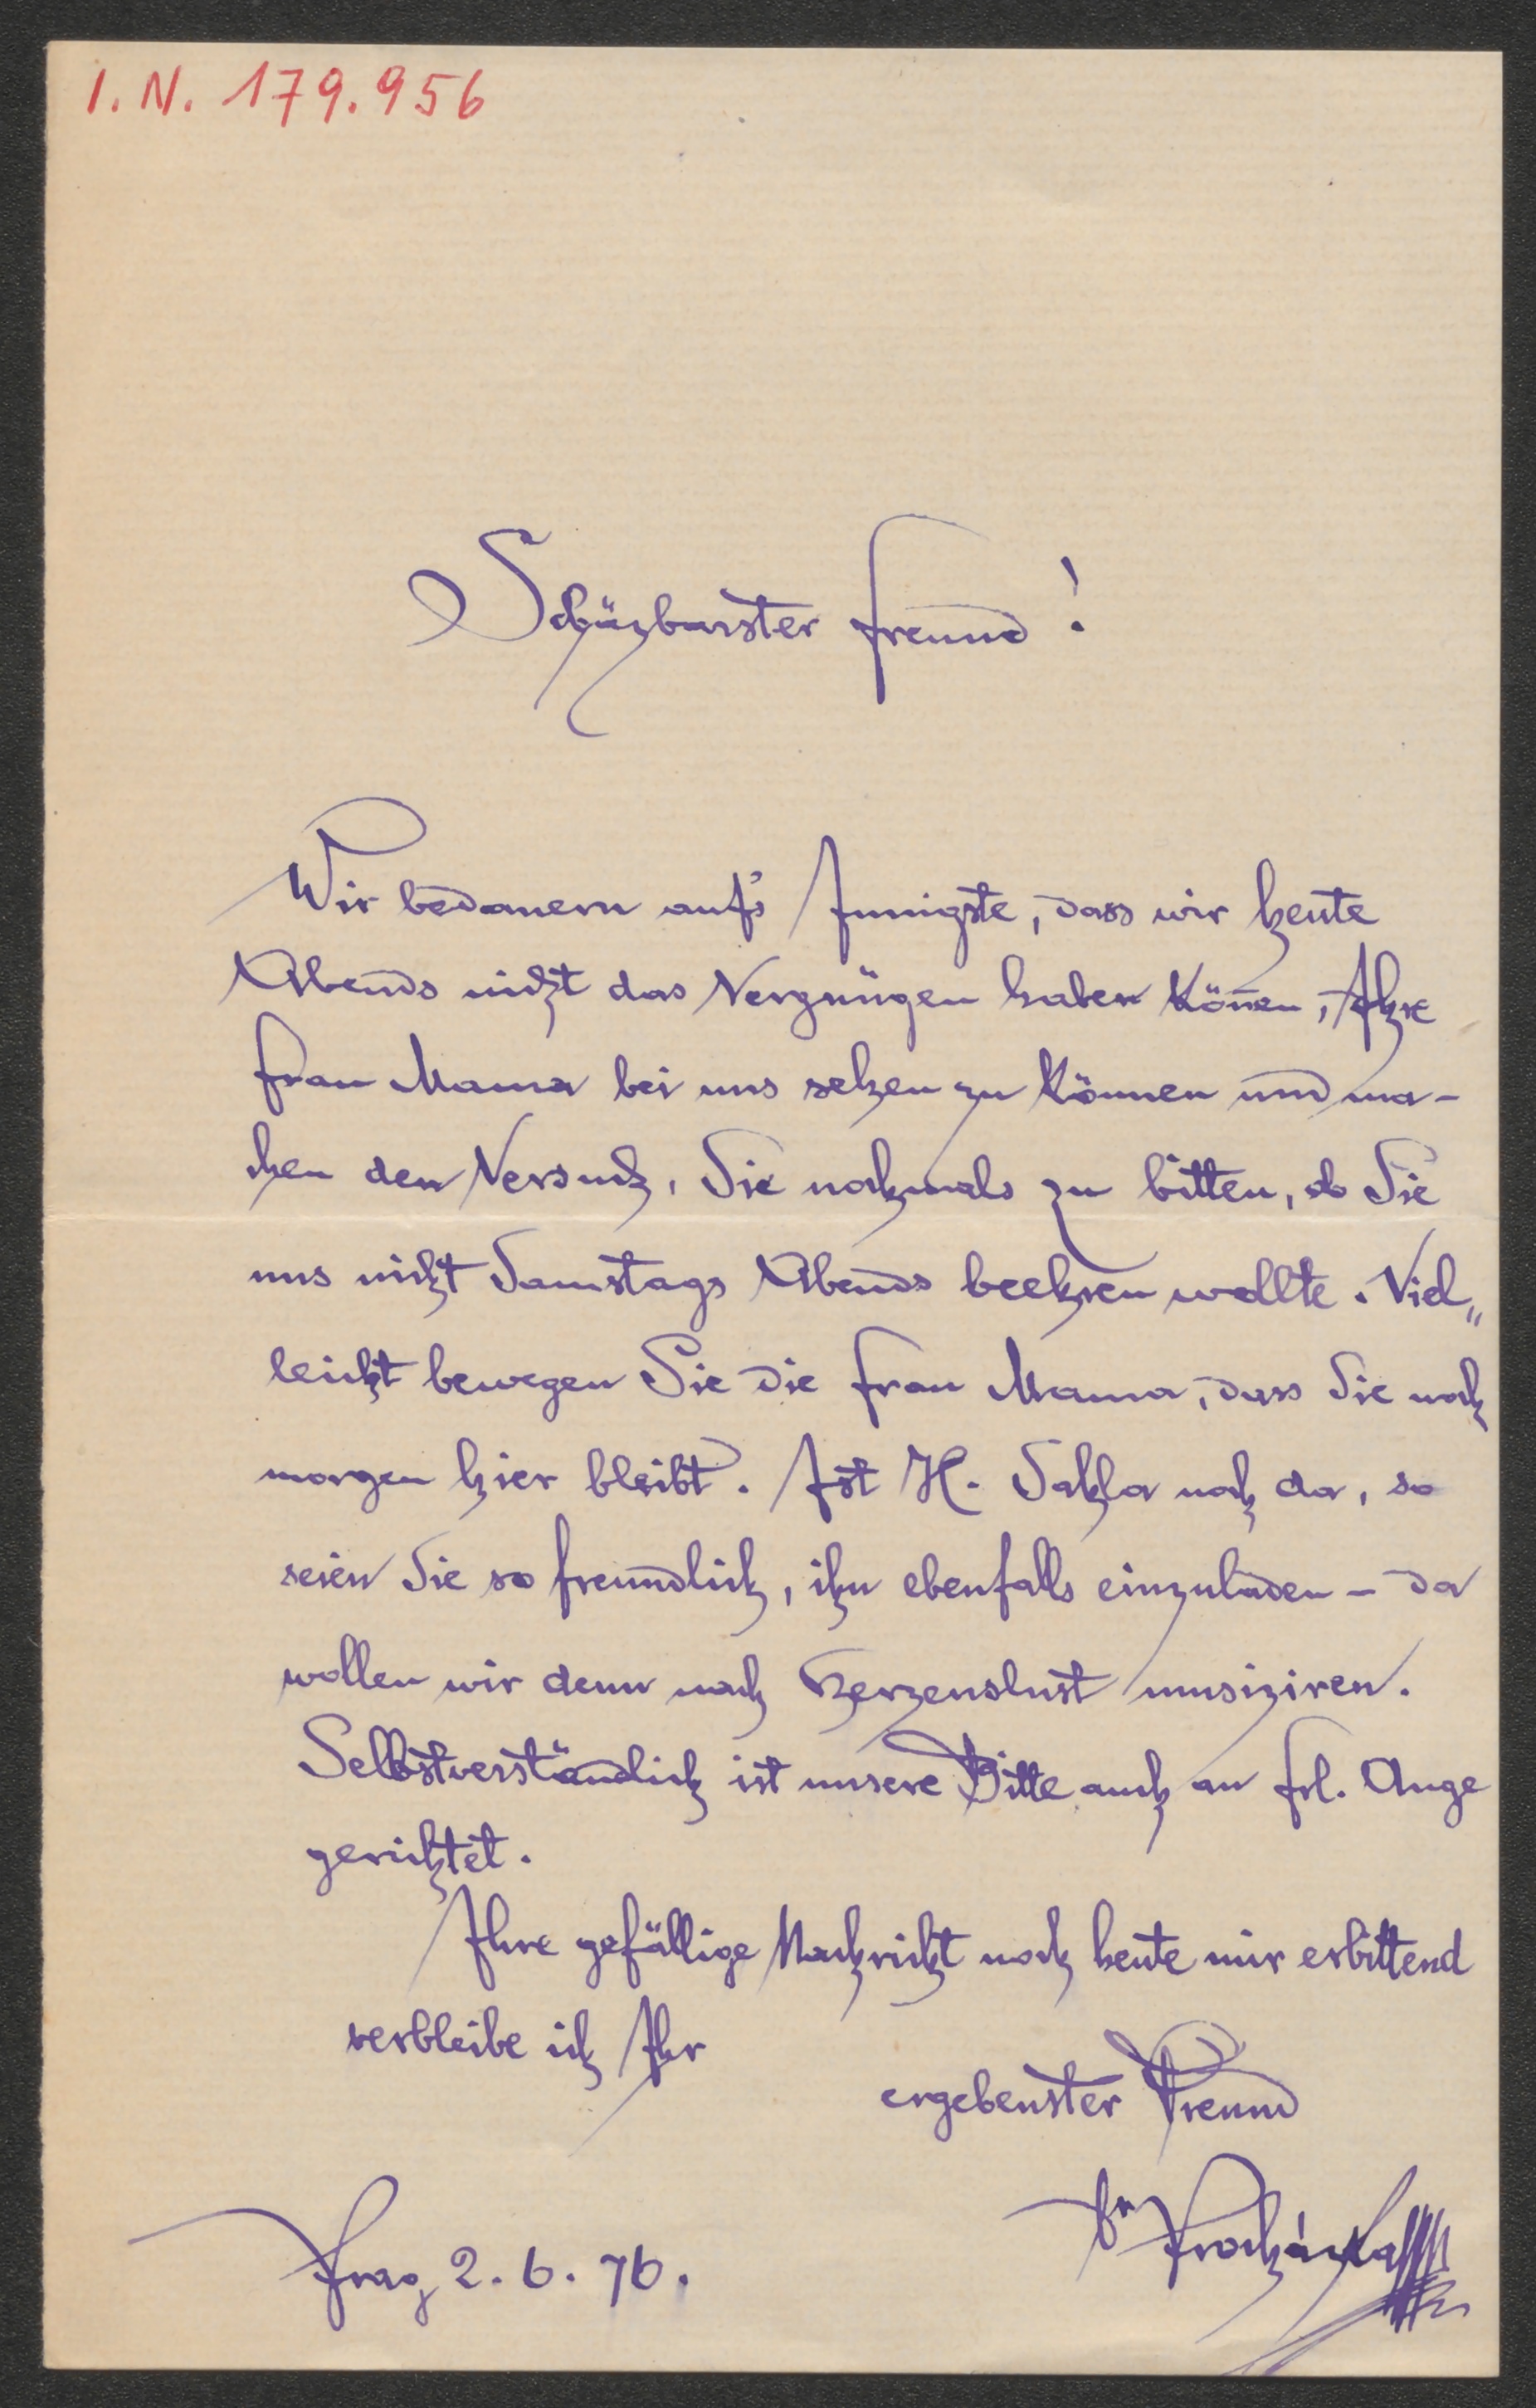 I. N. 179.956
Schäzbarster Freund!
Wir bedauern auf's Innigste, dass wir heute
Abends nicht das Vergnügen haben könen, Ihre
Frau Mama bei uns sehen zu können und ma-
chen den Versuch, Sie nochmals zu bitten, ob Sie
uns nicht Samstags Abends beehren wollte. Viel„
leicht bewegen Sie die Frau Mama, dass Sie noch
morgen hier bleibt. Ist H. noch da, so
seien Sie so freundlich, ihn ebenfalls einzuladen – da
wollen wir denn nach Herzenslust musiziren.
Selbstverständlich ist unsere Bitte auch an Frl. Auge
gerichtet.
Ihre gefällige Nachricht noch heute mir erbittend
verbleibe ich Ihr
ergebenster Freund
Dr Procházka
Prag 2. 6. 76.